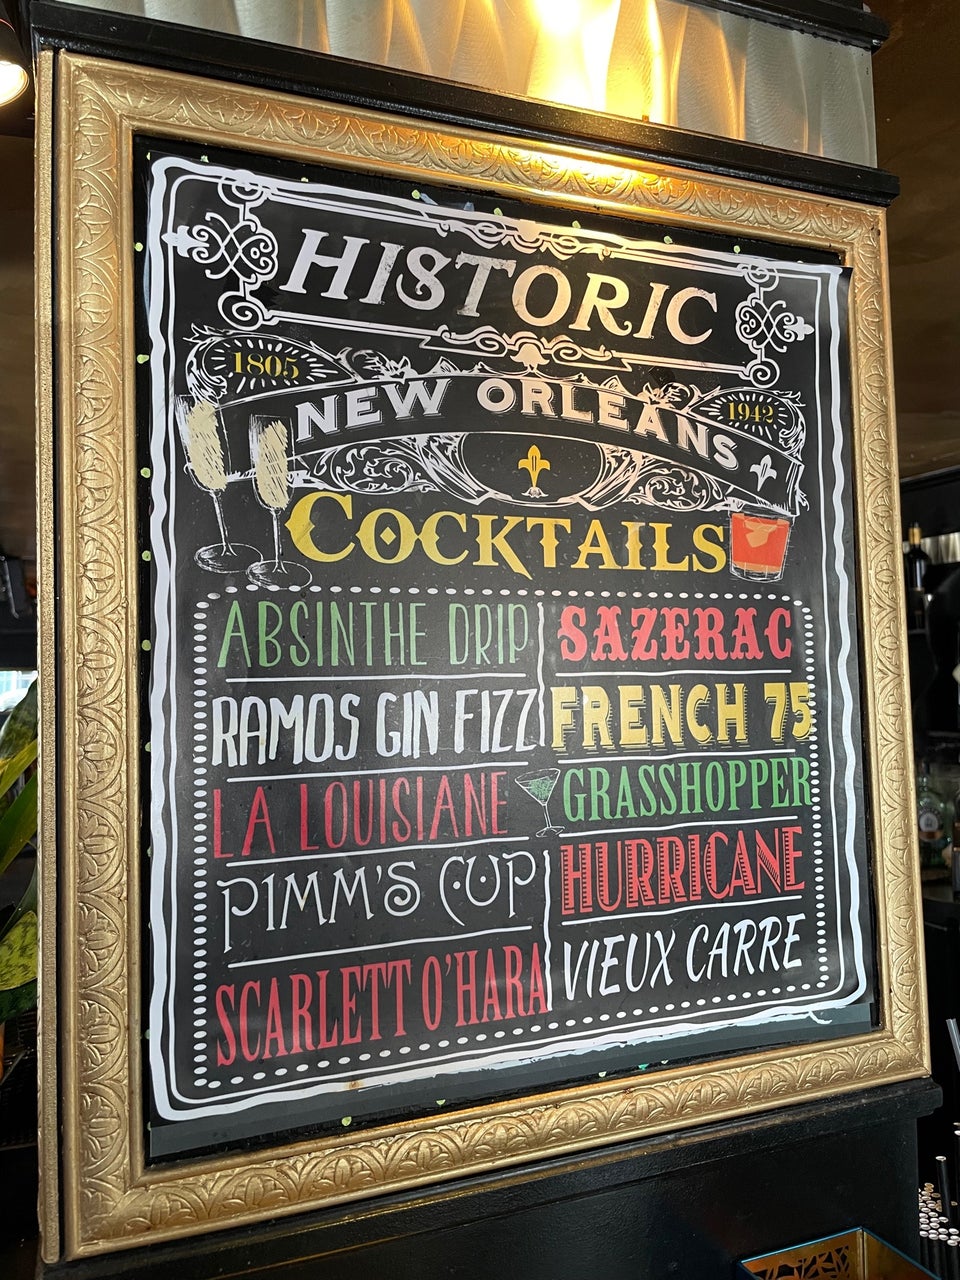 HISTORIC
1805
NEW ORLEANS
1942
COCKTAILS
ABSINTHE DRIP
SAZERAC
RAMOS GIN FIZZ
FRENCH 75
LA LOUISIANE
GRASSHOPPER
PIMM'S CUP
HURRICANE
SCARLETT O'HARA
VIEUX CARRE